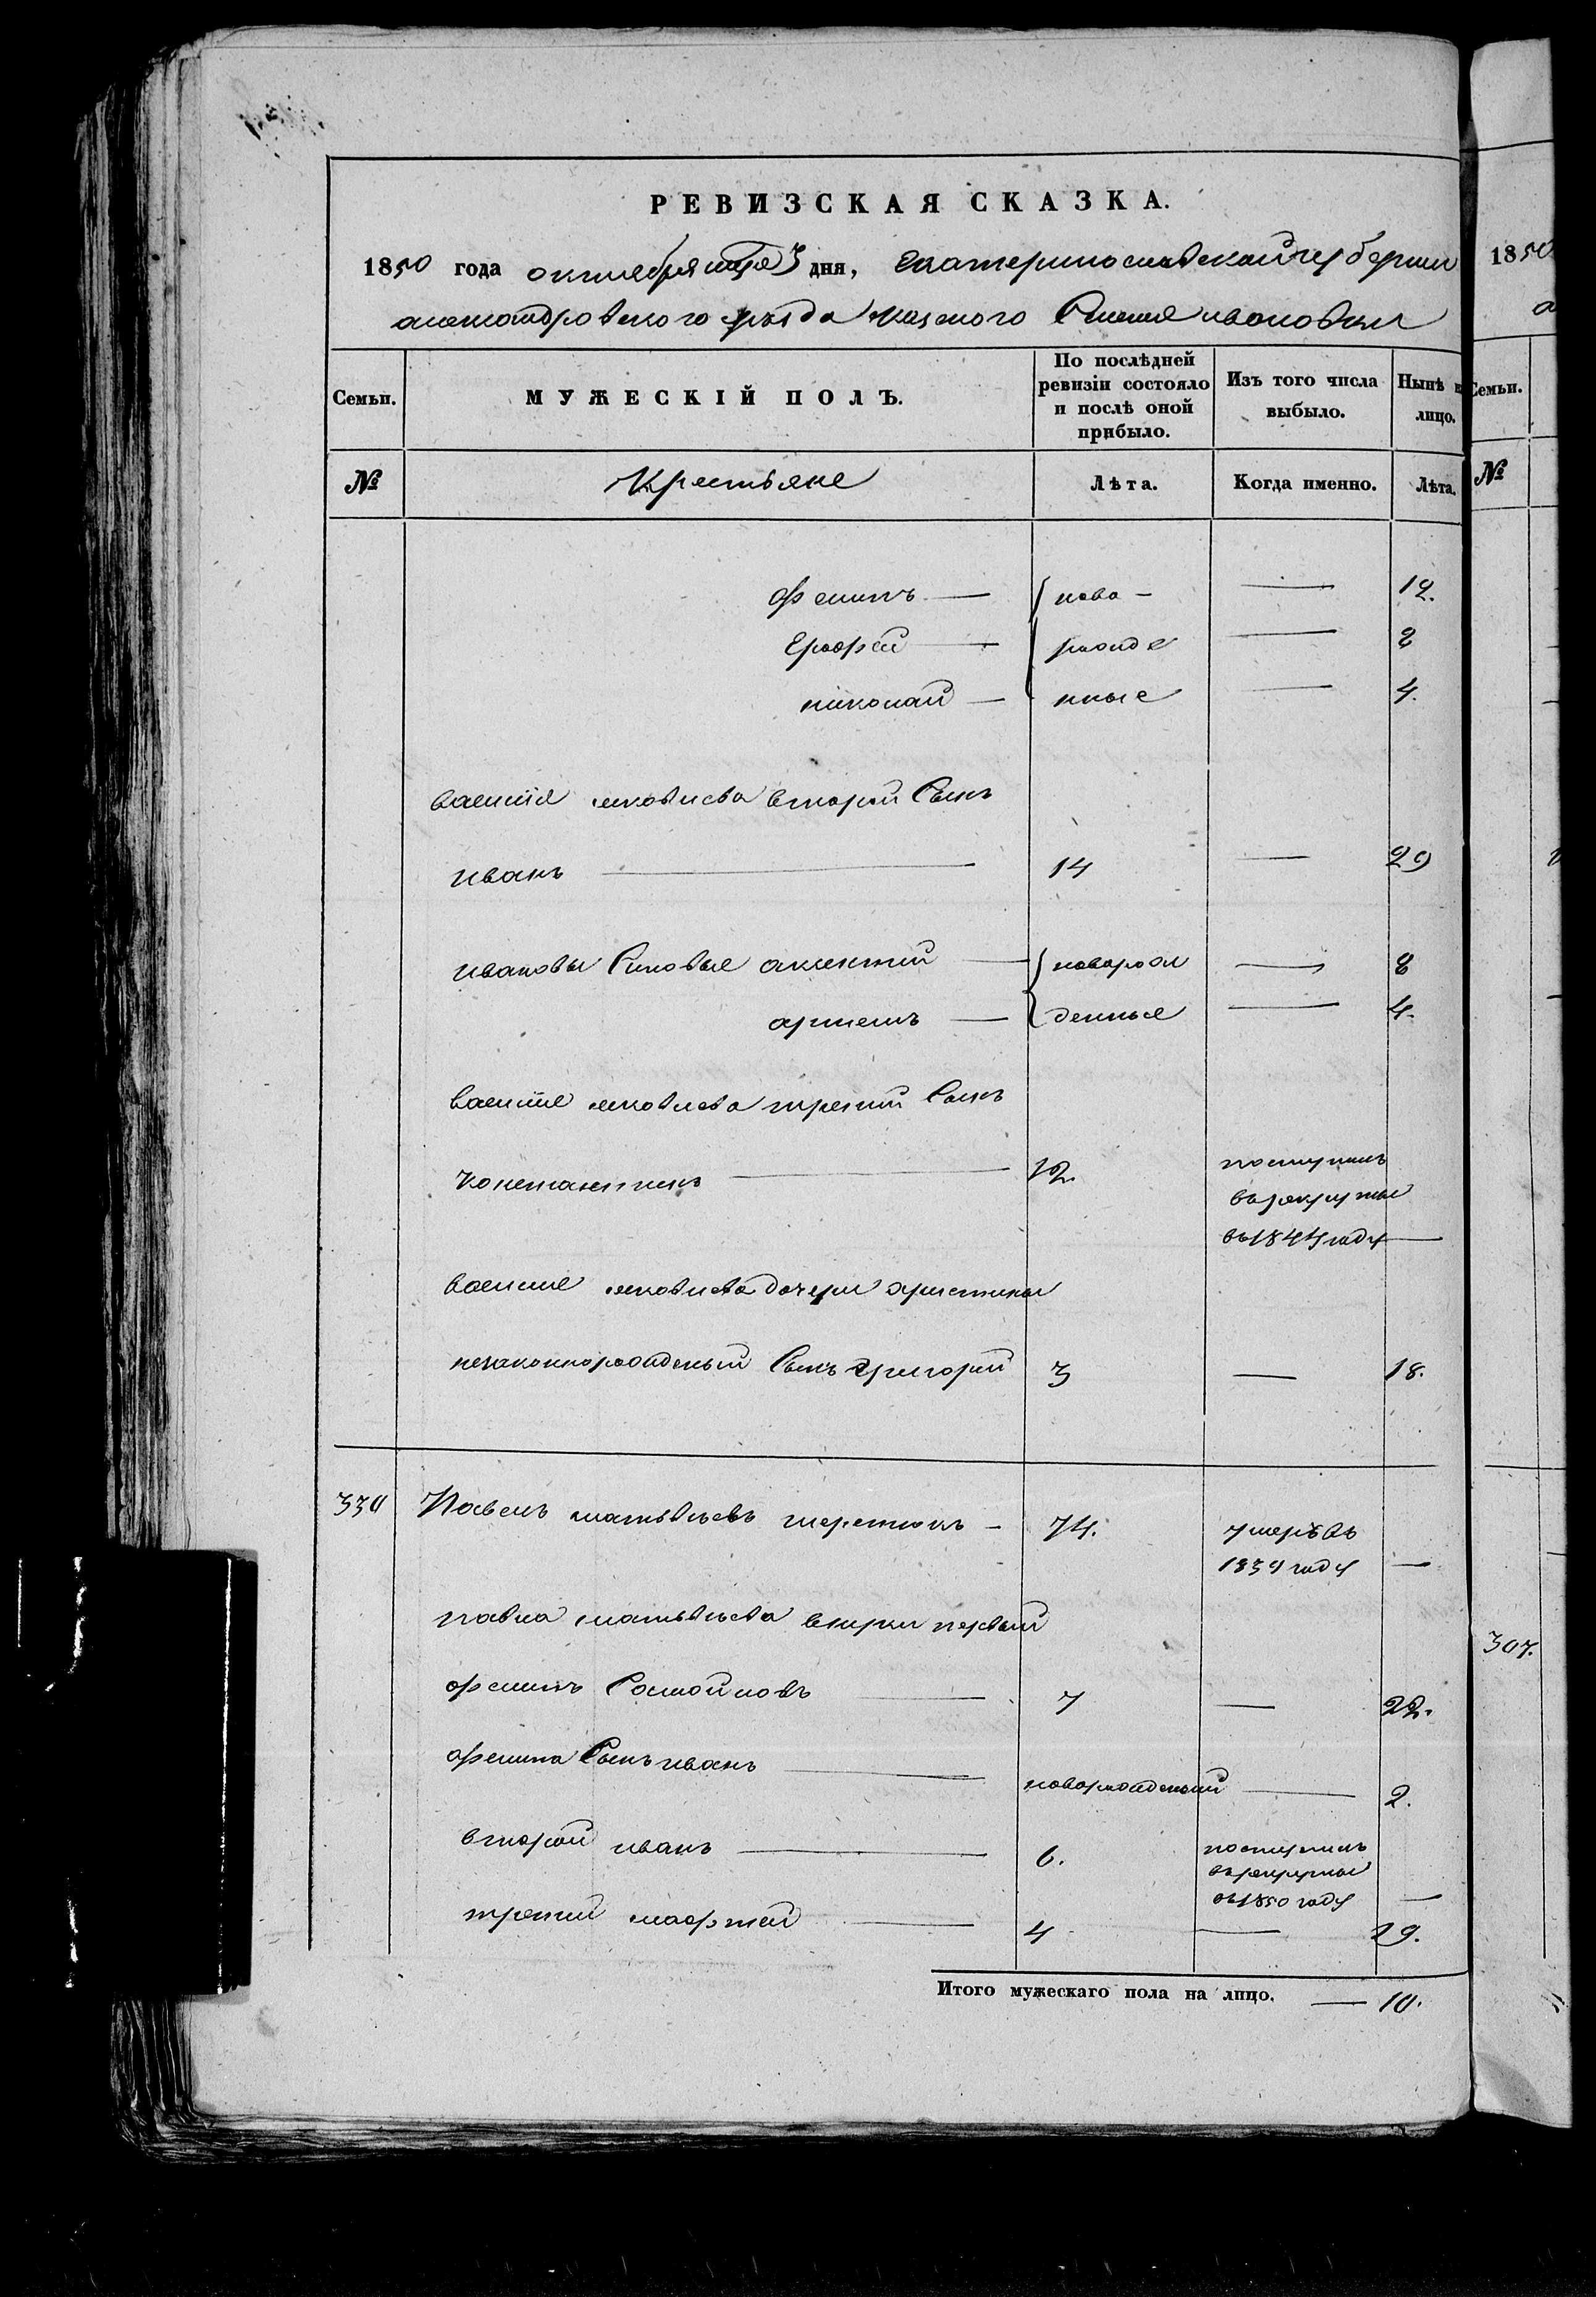 РЕВИЗСКАЯ СКАЗКА.
1850 года октября 3 дня, Екатеринославской губернии
александровского уезда Ивановки
Семьи.
МУЖЕСКІЙ ПОЛЪ.
По послѣдней ревизіи состояло и послѣ оной прибыло.
Изъ того числа выбыло.
Нынѣ н
лицо.
№
Крестьяне
Лѣта.
Когда именно.
Лѣта.
Филипъ — ново — — 12.
Ерофей — рожде — 8
николай — нные — 4.
василія яковлева второй Сынъ
иванъ — 14 — 29
ивановы Сыновье алексѣй — новорож — 8
артемъ — денные — 4.
василіе яковлева третий Сынъ
Константинъ — 12. поступилъ
въ рекруты
въ 1844 году —
василие яковлева дочери христины
незаконнорожденый Сынъ григорий 3 — 18.
330 Павелъ матвѣевъ — 74. умеръ въ
1839 году —
павла матвѣева внуки первый
филипъ Самойловъ — 7 — 22.
филипа Сынъ иванъ — новорожденый — 2.
второй иванъ — 6. поступилъ
въ рекруты
въ 1850 году —
третий — 4 — 19.
Итого мужескаго пола на лицо. — 10.
1850
Семьи.
№
307.